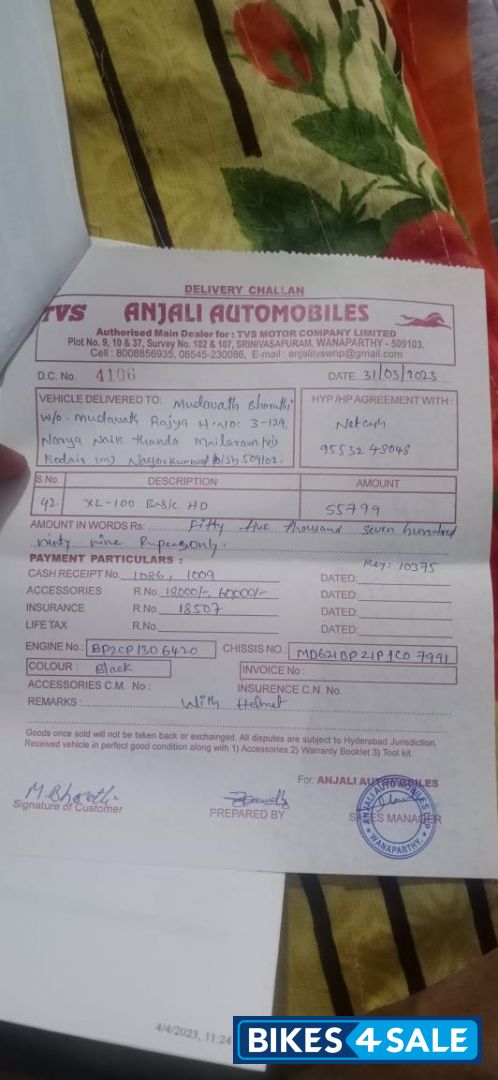 DELIVERY CHALLAN
TVS ANJALI AUTOMOBILES
Authorised Main Dealer for : TVS MOTOR COMPANY LIMITED
Plot No. 9, 10 & 37, Survey No. 102 & 107, SRINIVASAPURAM, WANAPARTHY - 509103.
Cell : 8008856935, 08545-230086, E-mail : anjalitvswnp@gmail.com
D.C. No. 4106 DATE 31/03/2023
VEHICLE DELIVERED TO: Mudavath Bharathi HYP /HP AGREEMENT WITH :
w/o. Mudavath Rajya H.No: 3-129, Net cash
Narya Naik Thanda Mailaram 95532 48048
Kodair (m) Nagarkurnool 509102.
S.No. DESCRIPTION AMOUNT
42. XL-100 Basic HD 55799
AMOUNT IN WORDS Rs: Fifty five thousand seven hundred
ninty nine Rupees only.
PAYMENT PARTICULARS : Key: 10375
CASH RECEIPT No. 1086, 1009 DATED:
ACCESSORIES R.No. 18000/-, 60000/- DATED:
INSURANCE R.No. 18507 DATED:
LIFE TAX R.No. DATED:
ENGINE No.: BP2CP1306420 CHISSIS NO.: MD621BP21P1C07991
COLOUR : Black INVOICE No :
ACCESSORIES C.M. No : INSURENCE C.N. No.
REMARKS : With Helmet
Goods once sold will not be taken back or exchainged. All disputes are subject to Hyderabad Jurisdiction,
Received vehicle in perfect good condition along with 1) Accessories 2) Warranty Booklet 3) Tool kit.
For ANJALI AUTOMOBILES
M. Bharathi
Signature of Customer PREPARED BY SALES MANAGER
ANJALI AUTOMOBILES
WANAPARTHY
4/4/2023, 11:24
BIKES4SALE